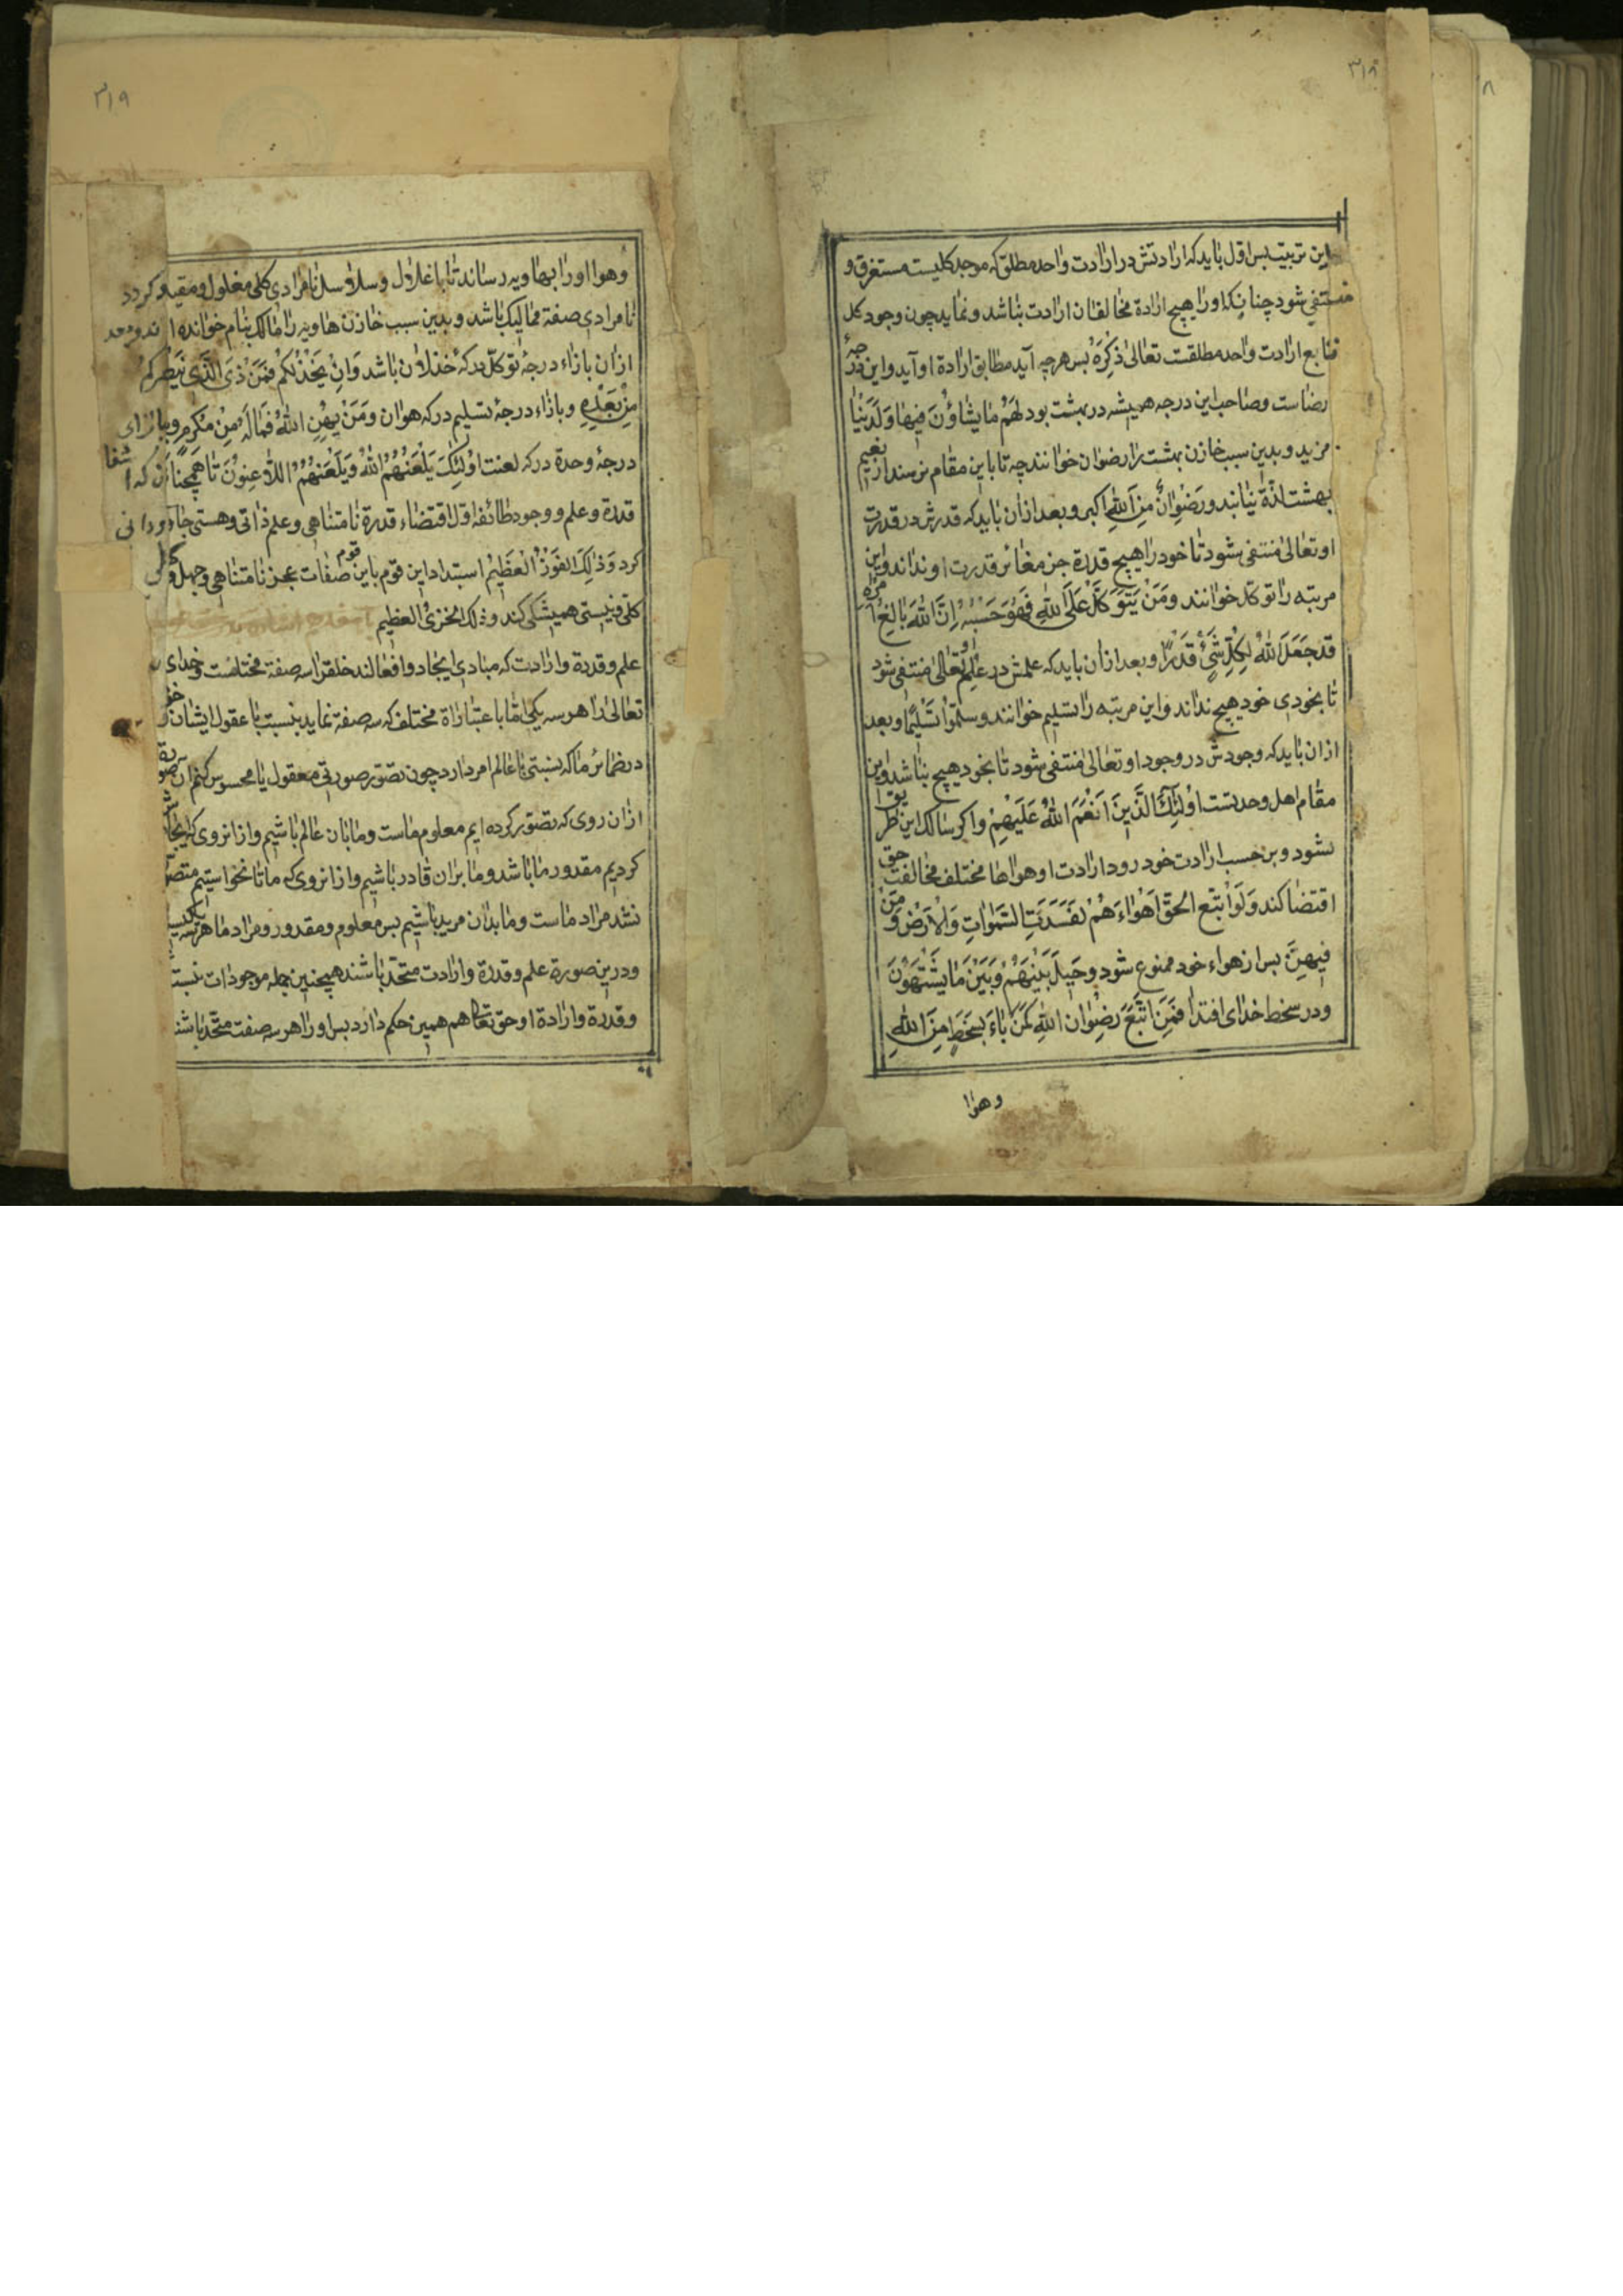 ۳۱۸
این تربیت بس اول باید که ارادتش در ارادت واحد مطلق که موجد کلیست مستغرق و
منتفی شود چنانکه او را هیچ ارادة مخالف ان ارادت نباشد و نماید چون وجود کل
تابع ارادت واحد مطلقت تعالی ذکره بس هرچه آید مطابق ارادة او آید و این درجهٔ
رضاست و صاحب این درجه همیشه در بهشت بود لَهُم مٰا یشٰاؤُنَ فیهٰا وَلَدَیْنٰا
مزید و بدین سبب خازن بهشت را رضوان خوانند چه تا باین مقام نرسند از نعیم
بهشت لذة نیابند وَرِضْوٰانٌ مِنَ اللهِ اکبر و بعد ازان باید که قدرش در قدرت
او تعالی منتفی شود تا خود را هیچ قدرة جز مغائر قدرت او نداند و این
مرتبه را توکل خوانند وَمَنْ یَتَوَکَّلْ عَلَی اللهِ فَهُوَ حَسْبُهُ اِنَّ اللهَ بٰالِغُ اَمْرِهِ
قَدْ جَعَلَ اللهُ لِکُلِّ شَیْءٍ قَدْرًا و بعد ازان باید که علمش در علم او تعالی منتفی شود
تا بخودی خود هیچ نداند و این مرتبه را تسلیم خوانند وسلّموا تَسْلیمًا و بعد
ازان باید که وجودش در وجود او تعالی منتفی شود تا بخود هیچ نباشد و این
مقام اهل وحدتست اُولٰئِكَ الَّذینَ اَنْعَمَ اللهُ عَلَیْهِمْ و اگر سالک این طریق
نشود و بر حسب ارادت خود رود ارادت او هواها مختلف مخالفت حق
اقتضا کند وَلَوِ اتَّبَعَ الحَقُّ اَهْوٰاءَهُمْ لَفَسَدَتِ السَّمٰوٰاتِ وَالْاَرْضُ وَمَنْ
فِیهِنَّ بس از هواء خود ممنوع شود وحیلَ بَیْنَهُمْ وَبَیْنَ مٰا یَشْتَهُوْنَ
و در سخط خدای افتد اَفَمَنِ اتَّبَعَ رِضْوٰانَ اللهِ کَمَنْ بٰاءَ بِسَخَطٍ مِنَ اللهِ
وهوا
۳۱۹
و هوا او را بهاویه رساند تا باغلال و سلاسل نامرادی کلی مغلول و مقید کردد
نامرادی صفة ممالیک باشد و بدین سبب خازن هاویه را مالک نام خوانده اند و بعد
ازان بازاء درجهٔ توکل درکهٔ خذلان باشد وَاِنْ یَخْذُلْکُمْ فَمَنْ ذَی الَّذی یَنْصُرُکُمْ
مِنْ بَعْدِهِ و بازاء درجهٔ تسلیم درکه هوان وَمَنْ یُهِنِ اللهُ فَمٰا لَهُ مِنْ مُکْرِمٍ و بازای
درجهٔ وحدة درکه لعنت اُولٰئِكَ یَلْعَنُهُمُ اللهُ وَیَلْعَنُهُمُ اللّٰاعِنُونَ تا همچنان که انتفا
قدرة و علم و وجود طائفهٔ اول اقتضاء قدرة نامتناهی و علم ذاتی و هستی جاودانی
کرد وَذٰلِكَ الفَوْزُ الْعَظیمُ استبداد این قوم باین صفات عجز نامتناهی و جهل کلی
کلی و نیستی همیشگی کند و ذلك الخزی العظیم
علم و قدرة و ارادت که مبادی ایجاد و افعالند خلق را سه صفة مختلفست و خدای
تعالی را هر سه یکی اما باعتبارات مختلف که سه صفة نماید بنسبت با عقول ایشان
در ضمائر ما که نسبتی با عالم امر دارد چون تصور صورتی معقول یا محسوس کنم ان صورة
ازان روی که تصور کرده ایم معلوم ماست و ما بان عالم باشیم و ازانروی که ایجاد
کردیم مقدور ما باشد و ما بران قادر باشیم و ازانروی که ما تا نخواستیم متصور
نشد مراد ماست و ما بدان مرید باشیم بس معلوم و مقدور و مراد ما هر سه یکیست
و درین صورة علم و قدرة و ارادت متحد باشند همچنین جمله موجودات نسبت
و قدرة و ارادة او حق تعالی هم همین حکم دارد بس او را هر سه صفت متحد باشد